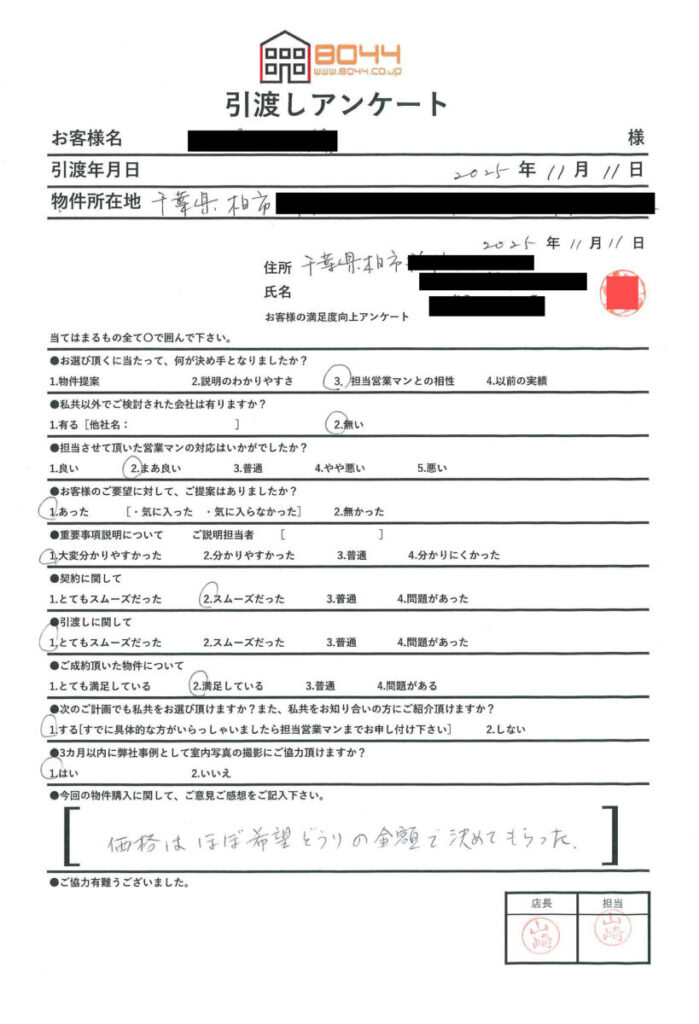 8044
www.8044.co.jp
引渡しアンケート
お客様名 様
引渡年月日 2025 年 11 月 11 日
物件所在地 千葉県柏市
2025 年 11 月 11 日
住所 千葉県柏市
氏名
お客様の満足度向上アンケート
当てはまるもの全て〇で囲んで下さい。
●お選び頂くに当たって、何が決め手となりましたか？
1.物件提案 2.説明のわかりやすさ 3. 担当営業マンとの相性 4.以前の実績
●私共以外でご検討された会社は有りますか？
1.有る［他社名： ］ 2.無い
●担当させて頂いた営業マンの対応はいかがでしたか？
1.良い 2.まあ良い 3.普通 4.やや悪い 5.悪い
●お客様のご要望に対して、ご提案はありましたか？
1.あった ［・気に入った ・気に入らなかった］ 2.無かった
●重要事項説明について ご説明担当者 ［ ］
1.大変分かりやすかった 2.分かりやすかった 3.普通 4.分かりにくかった
●契約に関して
1.とてもスムーズだった 2.スムーズだった 3.普通 4.問題があった
●引渡しに関して
1.とてもスムーズだった 2.スムーズだった 3.普通 4.問題があった
●ご成約頂いた物件について
1.とても満足している 2.満足している 3.普通 4.問題がある
●次のご計画でも私共をお選び頂けますか？また、私共をお知り合いの方にご紹介頂けますか？
1.する［すでに具体的な方がいらっしゃいましたら担当営業マンまでお申し付け下さい］ 2.しない
●3カ月以内に弊社事例として室内写真の撮影にご協力頂けますか？
1.はい 2.いいえ
●今回の物件購入に関して、ご意見ご感想をご記入下さい。
価格はほぼ希望どうりの金額で決めてもらった.
●ご協力有難うございました。
店長 担当
山崎 山崎